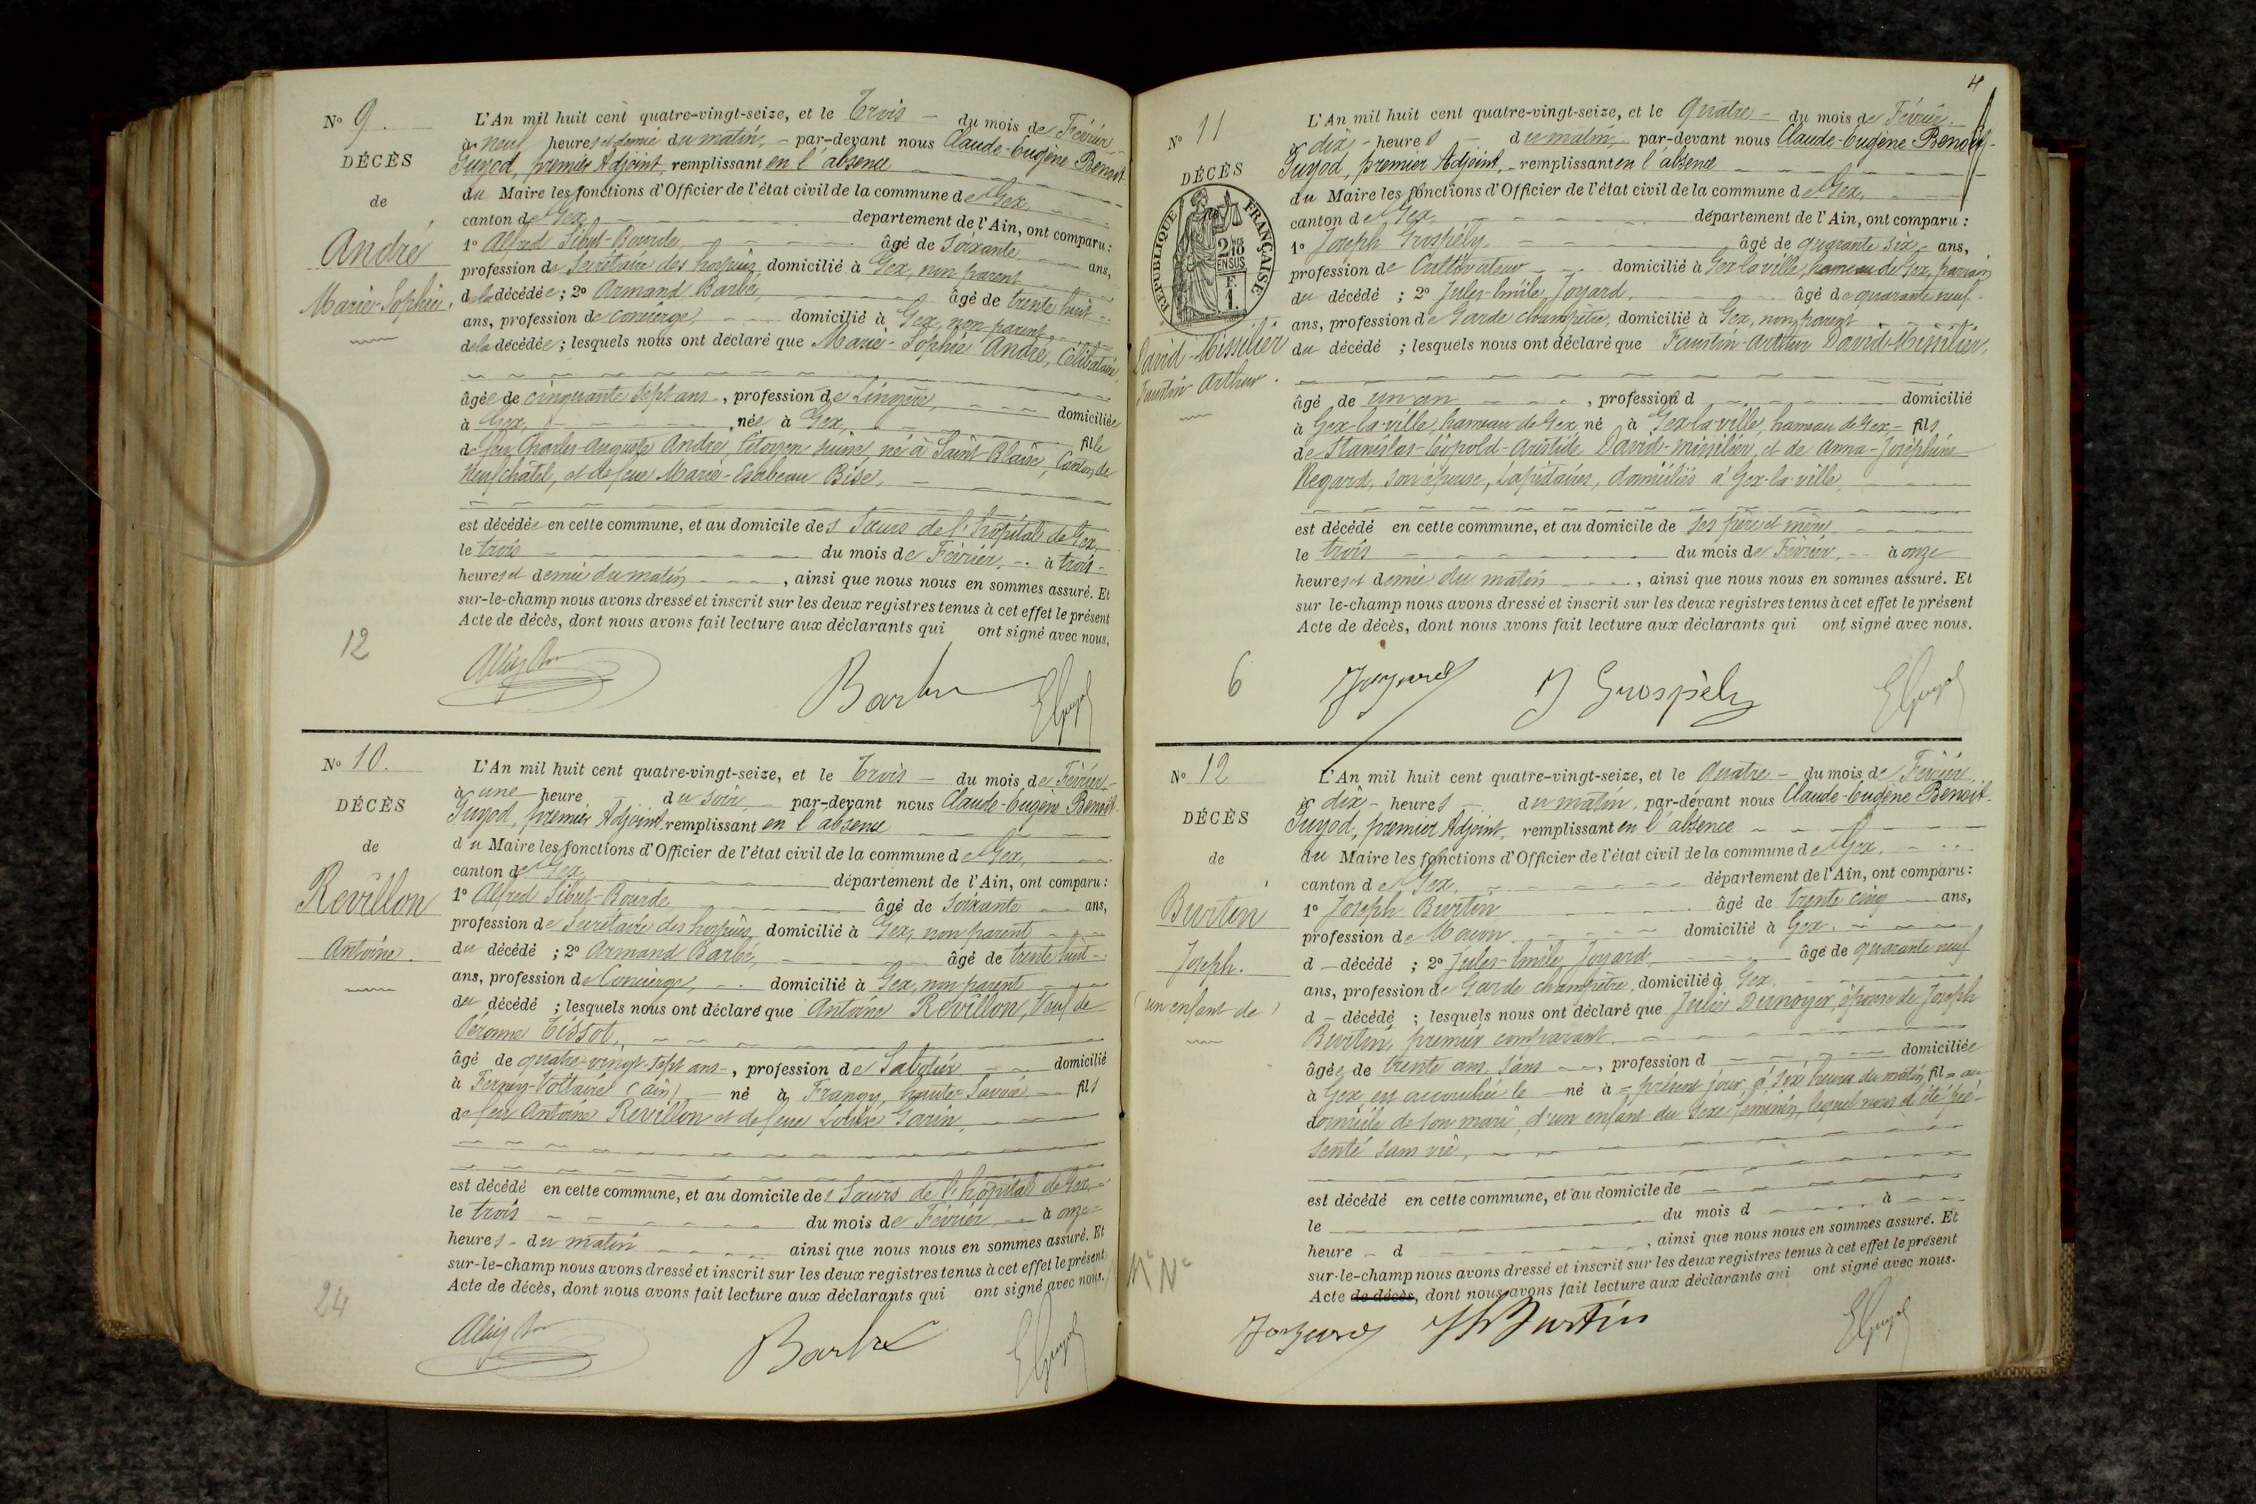 No 9.
DÉCÈS
de
André
Marie-Sophie.
12
L'An mil huit cent quatre-vingt-seize, et le Trois du mois de Février
à neuf heures et demie du matin, par-devant nous Claude-Eugène Benoit
Guyod, premier Adjoint, remplissant en l'absence
du Maire les fonctions d'Officier de l'état civil de la commune de Gex,
canton de Gex département de l'Ain, ont comparu :
1° Alfred Sibut-Bourde âgé de soixante ans,
profession de Secrétaire des hospices, domicilié à Gex, non parent
de la décédée ; 2° Armand Barbé, âgé de trente huit
ans, profession de concierge, domicilié à Gex, non parent
de la décédée ; lesquels nous ont déclaré que Marie-Sophie André, Célibataire,
âgée de cinquante sept ans, profession de Lingère, domiciliée
à Gex, née à Gex, fille
de feu Charles-Auguste André, Citoyen suisse, né à Saint-Blaise, Canton de
Neufchâtel, et de feue Marie-Esabeau Bise,
est décédée en cette commune, et au domicile des Sœurs de l'hôpital de Gex,
le trois du mois de Février, à trois
heures et demie du matin, ainsi que nous nous en sommes assuré. Et
sur-le-champ nous avons dressé et inscrit sur les deux registres tenus à cet effet le présent
Acte de décès, dont nous avons fait lecture aux déclarants qui ont signé avec nous.
Barbé EGuyod
No 10.
DÉCÈS
de
Revillon
Antoine.
24
L'An mil huit cent quatre-vingt-seize, et le Trois du mois de Février
à une heure du soir, par-devant nous Claude-Eugène Benoit
Guyod, premier Adjoint, remplissant en l'absence
du Maire les fonctions d'Officier de l'état civil de la commune de Gex,
canton de Gex département de l'Ain, ont comparu :
1° Alfred Sibut-Bourde âgé de soixante ans,
profession de Secrétaire des hospices, domicilié à Gex, non parent
du décédé ; 2° Armand Barbé, âgé de trente huit
ans, profession de Concierge, domicilié à Gex, non parent
du décédé ; lesquels nous ont déclaré que Antoine Revillon, Veuf de
Péronne Tissot,
âgé de quatre-vingt-sept ans, profession de Sabotier domicilié
à Ferney-Voltaire (Ain) né à Frangy, haute-Savoie fils
de feu Antoine Revillon et de feue Louise Gorin,
est décédé en cette commune, et au domicile des Sœurs de l'hôpital de Gex,
le trois du mois de Février à onze
heures du matin ainsi que nous nous en sommes assuré. Et
sur-le-champ nous avons dressé et inscrit sur les deux registres tenus à cet effet le présent
Acte de décès, dont nous avons fait lecture aux déclarants qui ont signé avec nous.
Barbé EGuyod
4
No 11
DÉCÈS
RÉPUBLIQUE FRANÇAISE
2/10 EN SUS
F. 1.
David-Missilier
Faustin Arthur.
6
L'An mil huit cent quatre-vingt-seize, et le Quatre du mois de Février
à dix heures du matin, par-devant nous Claude-Eugène Benoit
Guyod, premier Adjoint, remplissant en l'absence
du Maire les fonctions d'Officier de l'état civil de la commune de Gex,
canton de Gex département de l'Ain, ont comparu :
1° Joseph Grospély, âgé de quarante six ans,
profession de Cultivateur domicilié à Gex-la-ville, hameau de Gex, parrain
du décédé ; 2° Jules-Emile Joyard, âgé de quarante neuf
ans, profession de Garde champêtre, domicilié à Gex, non parent
du décédé ; lesquels nous ont déclaré que Faustin-Arthur David-Missilier,
âgé de un an, profession d domicilié
à Gex-la-ville, hameau de Gex né à Gex-la-ville, hameau de Gex fils
de Stanislas-Léopold-Aristide David-Missilier, et de Anna-Joséphine
Regard, son épouse, Lapidaires, domiciliés à Gex-la-ville,
est décédé en cette commune, et au domicile de ses père et mère
le trois du mois de Février, à onze
heures et demie du matin, ainsi que nous nous en sommes assuré. Et
sur le-champ nous avons dressé et inscrit sur les deux registres tenus à cet effet le présent
Acte de décès, dont nous avons fait lecture aux déclarants qui ont signé avec nous.
Joyard J Grospély EGuyod
No 12
DÉCÈS
de
Burtin
Joseph.
(un enfant de)
L'An mil huit cent quatre-vingt-seize, et le Quatre du mois de Février,
à dix heures du matin, par-devant nous Claude-Eugène Benoit
Guyod, premier Adjoint, remplissant en l'absence
du Maire les fonctions d'Officier de l'état civil de la commune de Gex,
canton de Gex, département de l'Ain, ont comparu :
1° Joseph Burtin âgé de trente cinq ans,
profession de Maçon domicilié à Gex,
d décédé ; 2° Jules-Emile Joyard, âgé de quarante neuf
ans, profession de Garde champêtre, domicilié à Gex
d décédé ; lesquels nous ont déclaré que Julie Dunoyer, épouse de Joseph
Burtin, premier comparant,
âgée de trente ans, sans, profession d domiciliée
à Gex, est accouchée le né à présent jour, à six heures du matin, fil au
domicile de son mari, d'un enfant du sexe féminin, lequel nous a été pré-
senté sans vie,
est décédé en cette commune, et au domicile de
le du mois d à
heure d, ainsi que nous nous en sommes assuré. Et
sur-le-champ nous avons dressé et inscrit sur les deux registres tenus à cet effet le présent
Acte de décès, dont nous avons fait lecture aux déclarants qui ont signé avec nous.
Joyard Burtin EGuyod